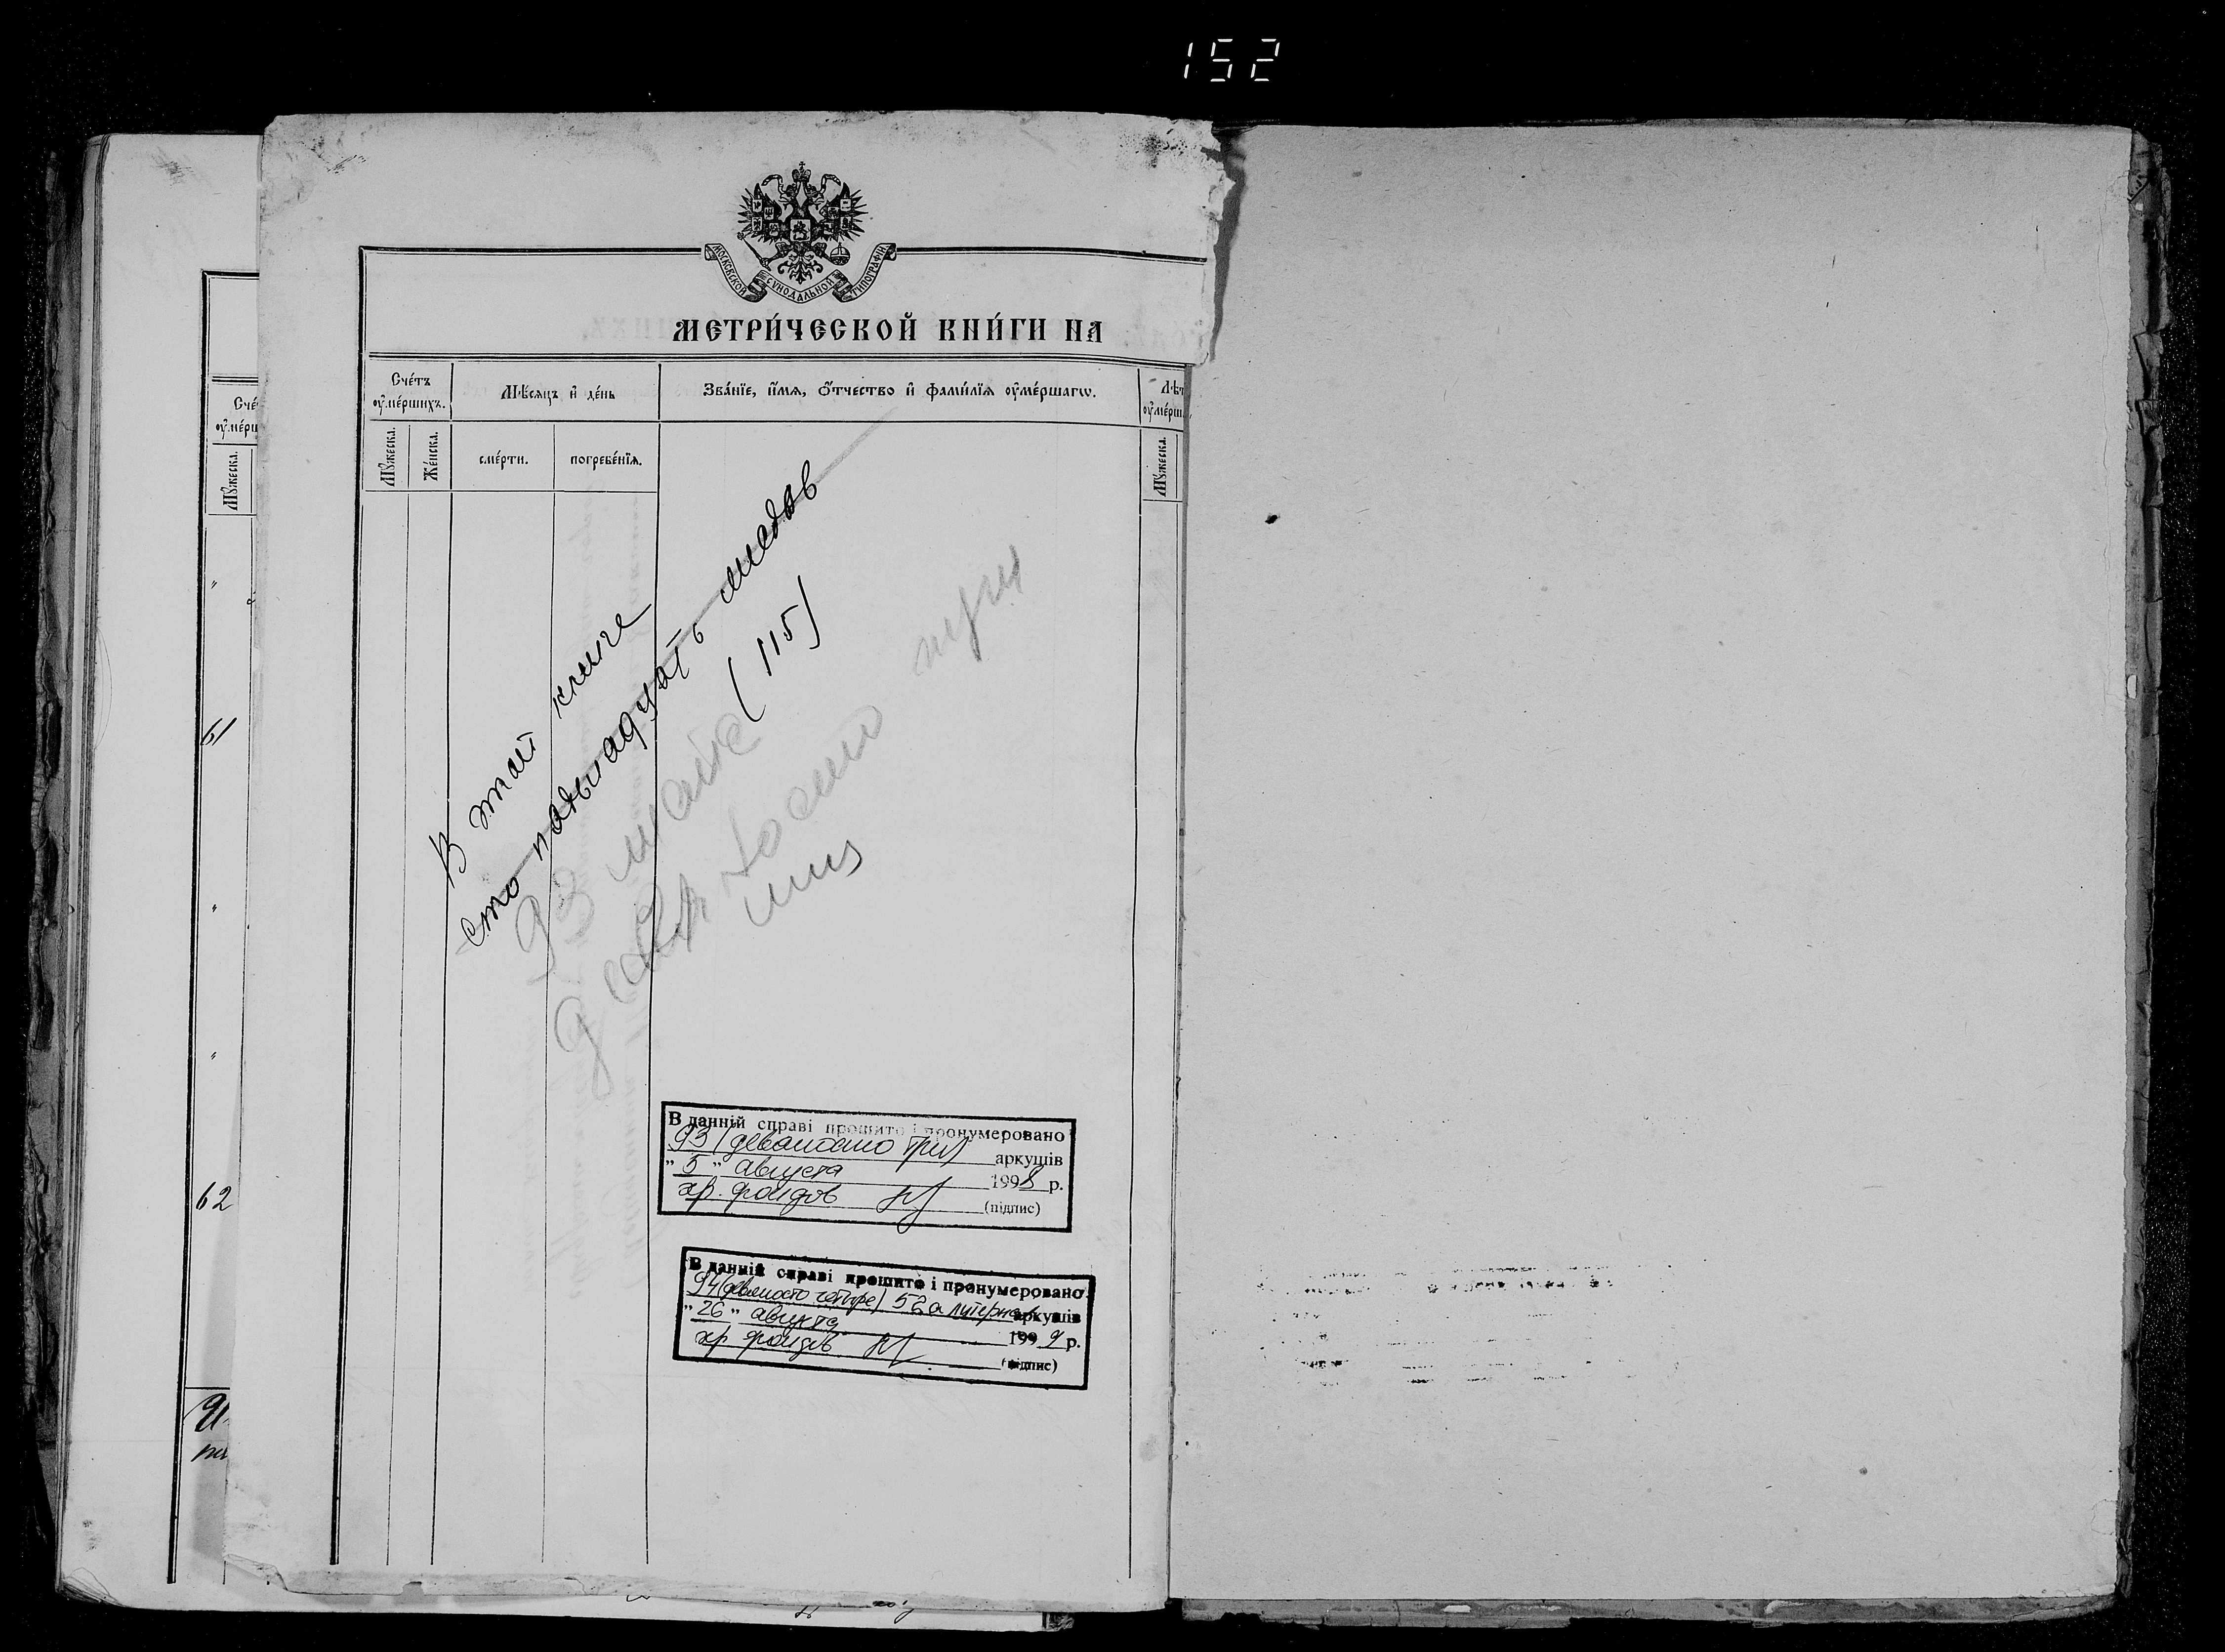 152
МОСКОВСКОЙ СѴНОДАЛЬНОЙ ТИПОГРАФІИ.
МЕТРИ́ЧЕСКОЙ КНИ́ГИ НА
Сче́тъ ᲂу҆ме́ршихъ.
Мѣ́сѧцъ и҆ де́нь
Зва́нїе, и҆́мѧ, ѻ҆́тчество и҆ фами́лїѧ ᲂу҆ме́ршагѡ.
Лѣт
ᲂу҆ме́рш
Мꙋ́жеска.
Же́нска.
сме́рти.
погребе́нїѧ.
Мꙋ́жеска.
Сче
ᲂу҆ме́рш
Мꙋ́жеска.
61
62
91
В этой книге
сто пятнадцать листов
(115)
93
девяносто три
В данній справі прошито і пронумеровано
93 (девяносто три) аркушів
„ 5 " августа 1998 р.
хр. фондов (підпис)
В данній справі прошито і пронумеровано
94 (девяносто четыре) 52а литерная аркушів
„ 26 " августа 1999 р.
хр фондов (підпис)